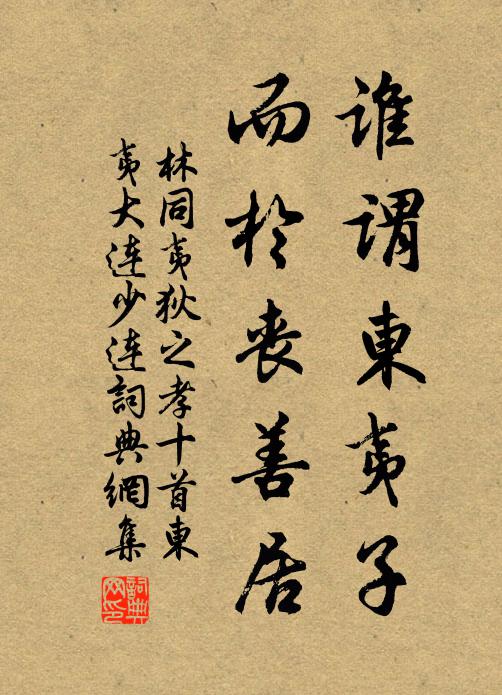 誰謂東夷子
而於喪善居
林同夷狄之孝十首東
夷大連少連詞典網集
詞典网印